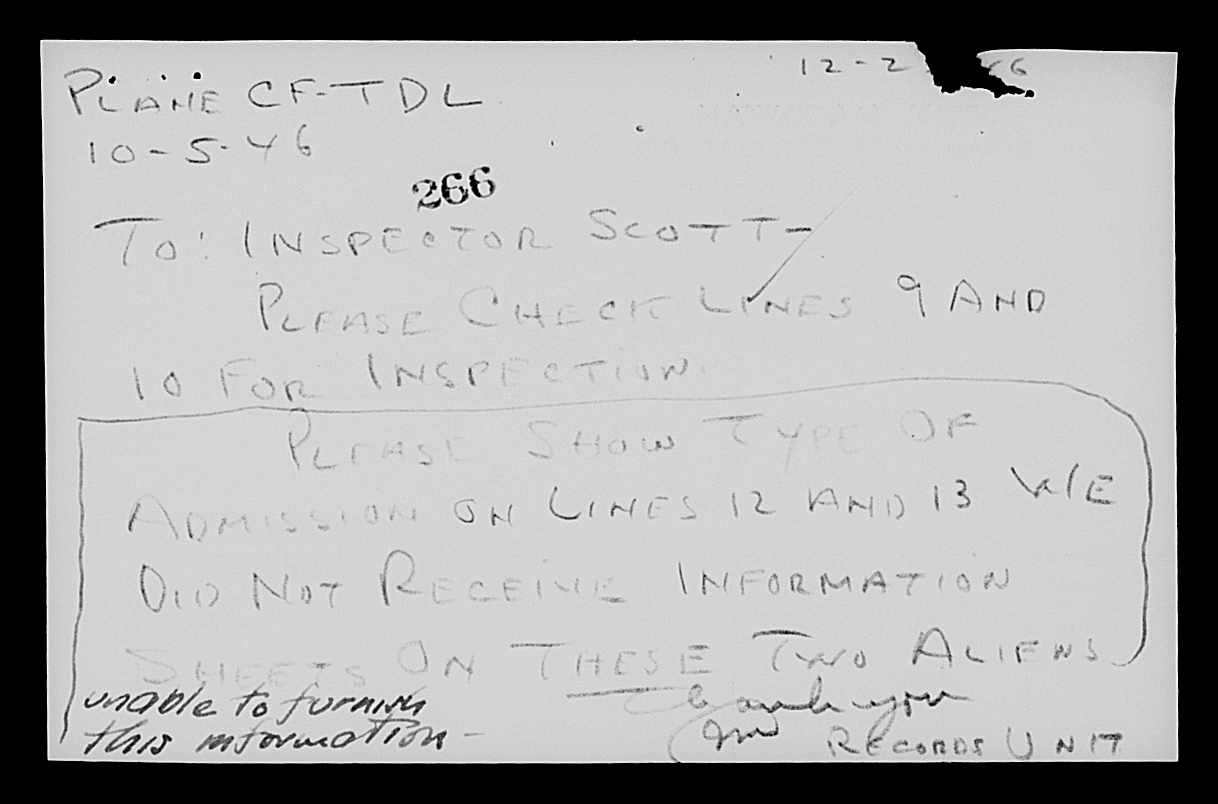 PLANE CF-TDL
12-2 46
10-5-46
266
TO: INSPECTOR SCOTT-
PLEASE CHECK LINES 9 AND
10 FOR INSPECTION.
PLEASE SHOW TYPE OF
ADMISSION ON LINES 12 AND 13 WE
DID NOT RECEIVE INFORMATION
SHEETS ON THESE TWO ALIENS
unable to furnish
this information -
Thank you
RECORDS UNIT